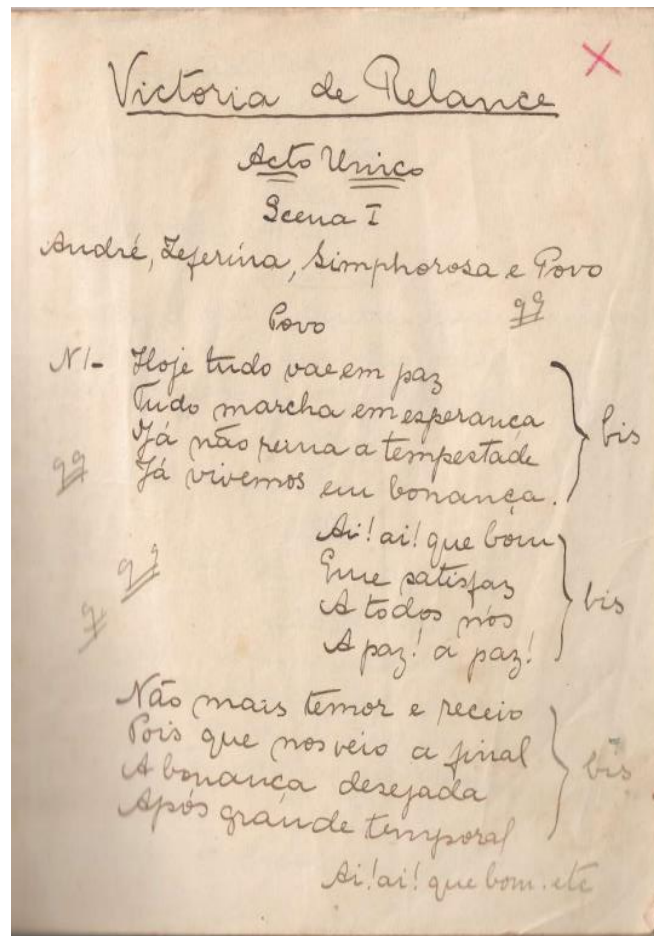 Victoria de Relance
Acto Unico
Scena I
André, Zeferina, Simphorosa e Povo
Povo
N1- Hoje tudo vae em paz
Tudo marcha em esperança
Já não reina a tempestade
Já vivemos em bonança.
bis
Ai! ai! que bom
Que satisfaz
A todos nós
A paz! a paz!
bis
Não mais temor e receio
Pois que nos veio a final
A bonança desejada
Após grande temporal
bis
Ai! ai! que bom. etc